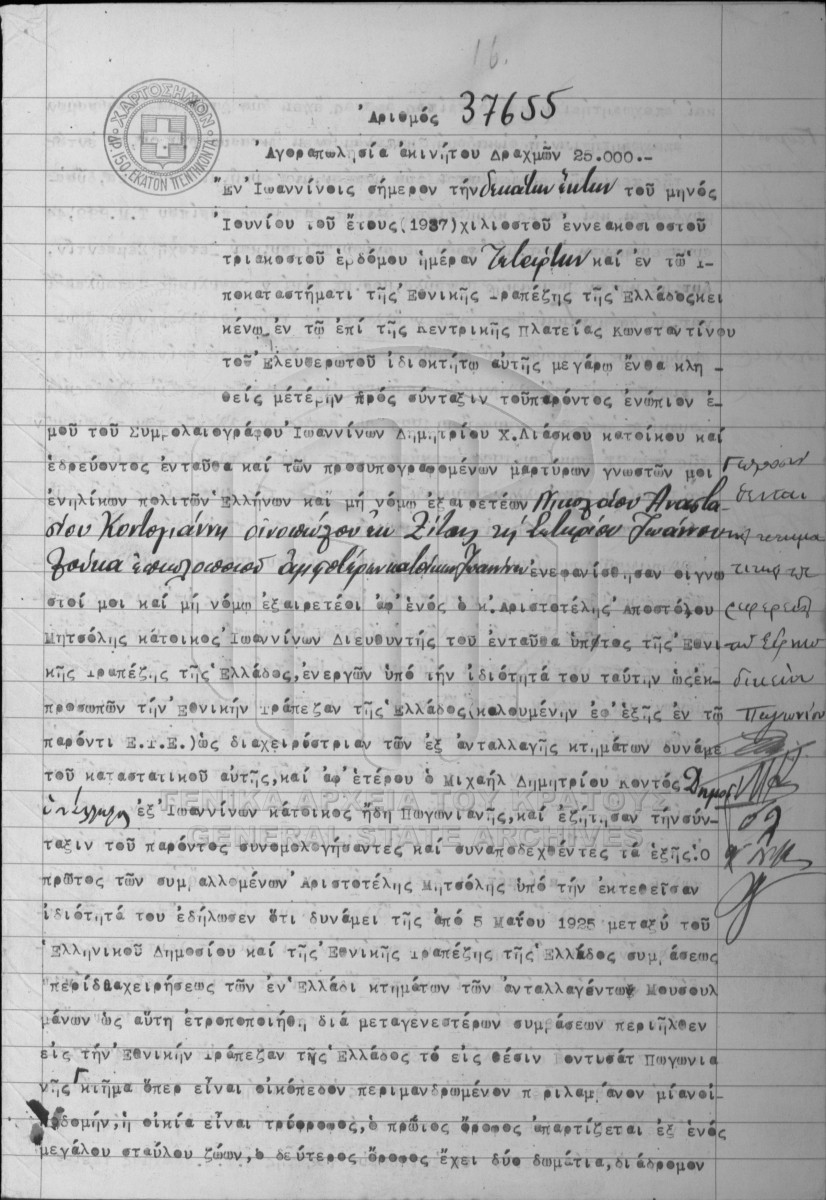 16.
ΧΑΡΤΟΣΗΜΟΝ
ΔΡ. 150. ΕΚΑΤΟΝ ΠΕΝΤΗΚΟΝΤΑ
Ἀριθμός 37655
Ἀγοραπωλησία ἀκινήτου Δραχμῶν 25.000.-
Ἐν Ἰωαννίνοις σήμερον τήν δεκάτην ἕκτην τοῦ μηνός
Ἰουνίου τοῦ ἔτους (1937) χιλιοστοῦ ἐννεακοσιοστοῦ
τριακοστοῦ ἑβδόμου ἡμέραν Τετάρτην καί ἐν τῷ Ὑ-
ποκαταστήματι τῆς Ἐθνικῆς Τραπέζης τῆς Ἑλλάδος κει
κένῳ ἐν τῷ ἐπί τῆς Κεντρικῆς Πλατείας Κωνσταντίνου
τοῦ Ἐλευθερωτοῦ ἰδιοκτήτῳ αὐτῆς μεγάρῳ ἔνθα κλη -
θείς μετέβην πρός σύνταξιν τοῦ παρόντος ἐνώπιον ἐ-
μοῦ τοῦ Συμβολαιογράφου Ἰωαννίνων Δημητρίου Χ. Λιάσκου κατοίκου καί
ἑδρεύοντος ἐνταῦθα καί τῶν προσυπογραφομένων μαρτύρων γνωστῶν μοι
ἐνηλίκων πολιτῶν Ἑλλήνων καί μή νόμῳ ἐξαιρετέων Νικολάου Αναστα
σίου Κοντογιάννη οἰνοπώλου ἐκ Ζίτσης καί Ἰωάννου
ἀμφοτέρων κατοίκων Ἰωαννίνων ἐνεφανίσθησαν οἱ γνω
στοί μοι καί μή νόμῳ ἐξαιρετέοι ἀφ' ἑνός ὁ κ. Ἀριστοτέλης Ἀποστόλου
Μητσόλης κάτοικος Ἰωαννίνων Διευθυντής τοῦ ἐνταῦθα ὑπ/τος τῆς Ἐθνι
κῆς Τραπέζης τῆς Ἑλλάδος, ἐνεργῶν ὑπό τήν ἰδιότητά του ταύτην ὡς ἐκ-
προσωπῶν τήν Ἐθνικήν Τράπεζαν τῆς Ἑλλάδος (καλουμένην ἐφ' ἑξῆς ἐν τῷ
παρόντι Ε.Τ.Ε.) ὡς διαχειρίστριαν τῶν ἐξ ἀνταλλαγῆς κτημάτων δυνάμε
τοῦ καταστατικοῦ αὐτῆς, καί ἀφ' ἑτέρου ὁ Μιχαήλ Δημητρίου Κοντός Δημοσ.
ὑπάλληλος ἐξ Ἰωαννίνων κάτοικος ἤδη Πωγωνιανῆς, καί ἐζήτησαν τήν σύν-
ταξιν τοῦ παρόντος συνομολογήσαντες καί συναποδεχθέντες τά ἑξῆς: Ὁ
πρῶτος τῶν συμβαλλομένων Ἀριστοτέλης Μητσόλης ὑπό τήν ἐκτεθεῖσαν
ἰδιότητά του ἐδήλωσεν ὅτι δυνάμει τῆς ἀπό 5 Μαΐου 1925 μεταξύ τοῦ
Ἑλληνικοῦ Δημοσίου καί τῆς Ἐθνικῆς Τραπέζης τῆς Ἑλλάδος συμβάσεως
"περί διαχειρήσεως τῶν ἐν Ἑλλάδι κτημάτων τῶν ἀνταλλαγέντων Μουσουλ
μάνων ὡς αὕτη ἐτροποποιήθη διά μεταγενεστέρων συμβάσεων περιῆλθεν
εἰς τήν Ἐθνικήν Τράπεζαν τῆς Ἑλλάδος τό εἰς θέσιν Βοντισάτ Πωγωνια
νῆς κτῆμα ὅπερ εἶναι οἰκόπεδον περιμανδρωμένον περιλαμβάνον μίαν οἰ-
κοδομήν, ἡ οἰκία εἶναι τριόροφος, ὁ πρῶτος ὄροφος ἀπαρτίζεται ἐξ ἑνός
μεγάλου σταύλου ζώων, ὁ δεύτερος ὄροφος ἔχει δύο δωμάτια, διάδρομον
Εἰρηνο
δικείῳ
Πωγωνίου
ΓΕΝΙΚΑ ΑΡΧΕΙΑ ΤΟΥ ΚΡΑΤΟΥΣ
GENERAL STATE ARCHIVES